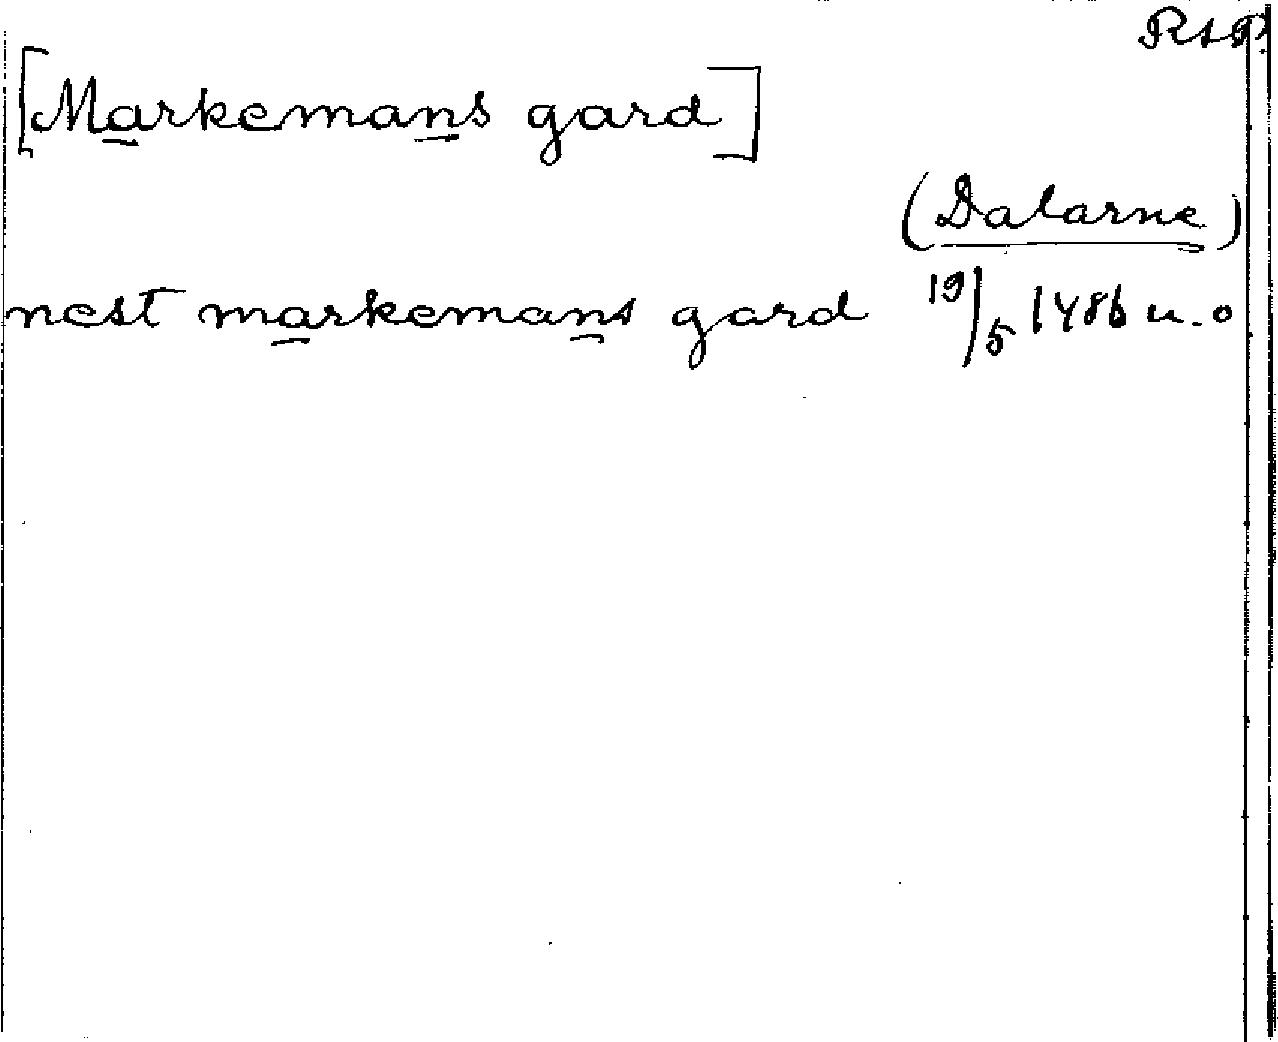 RAP
[Markemans gard]
(Dalarne)
nest markemans gard 19/5 1486 u.o